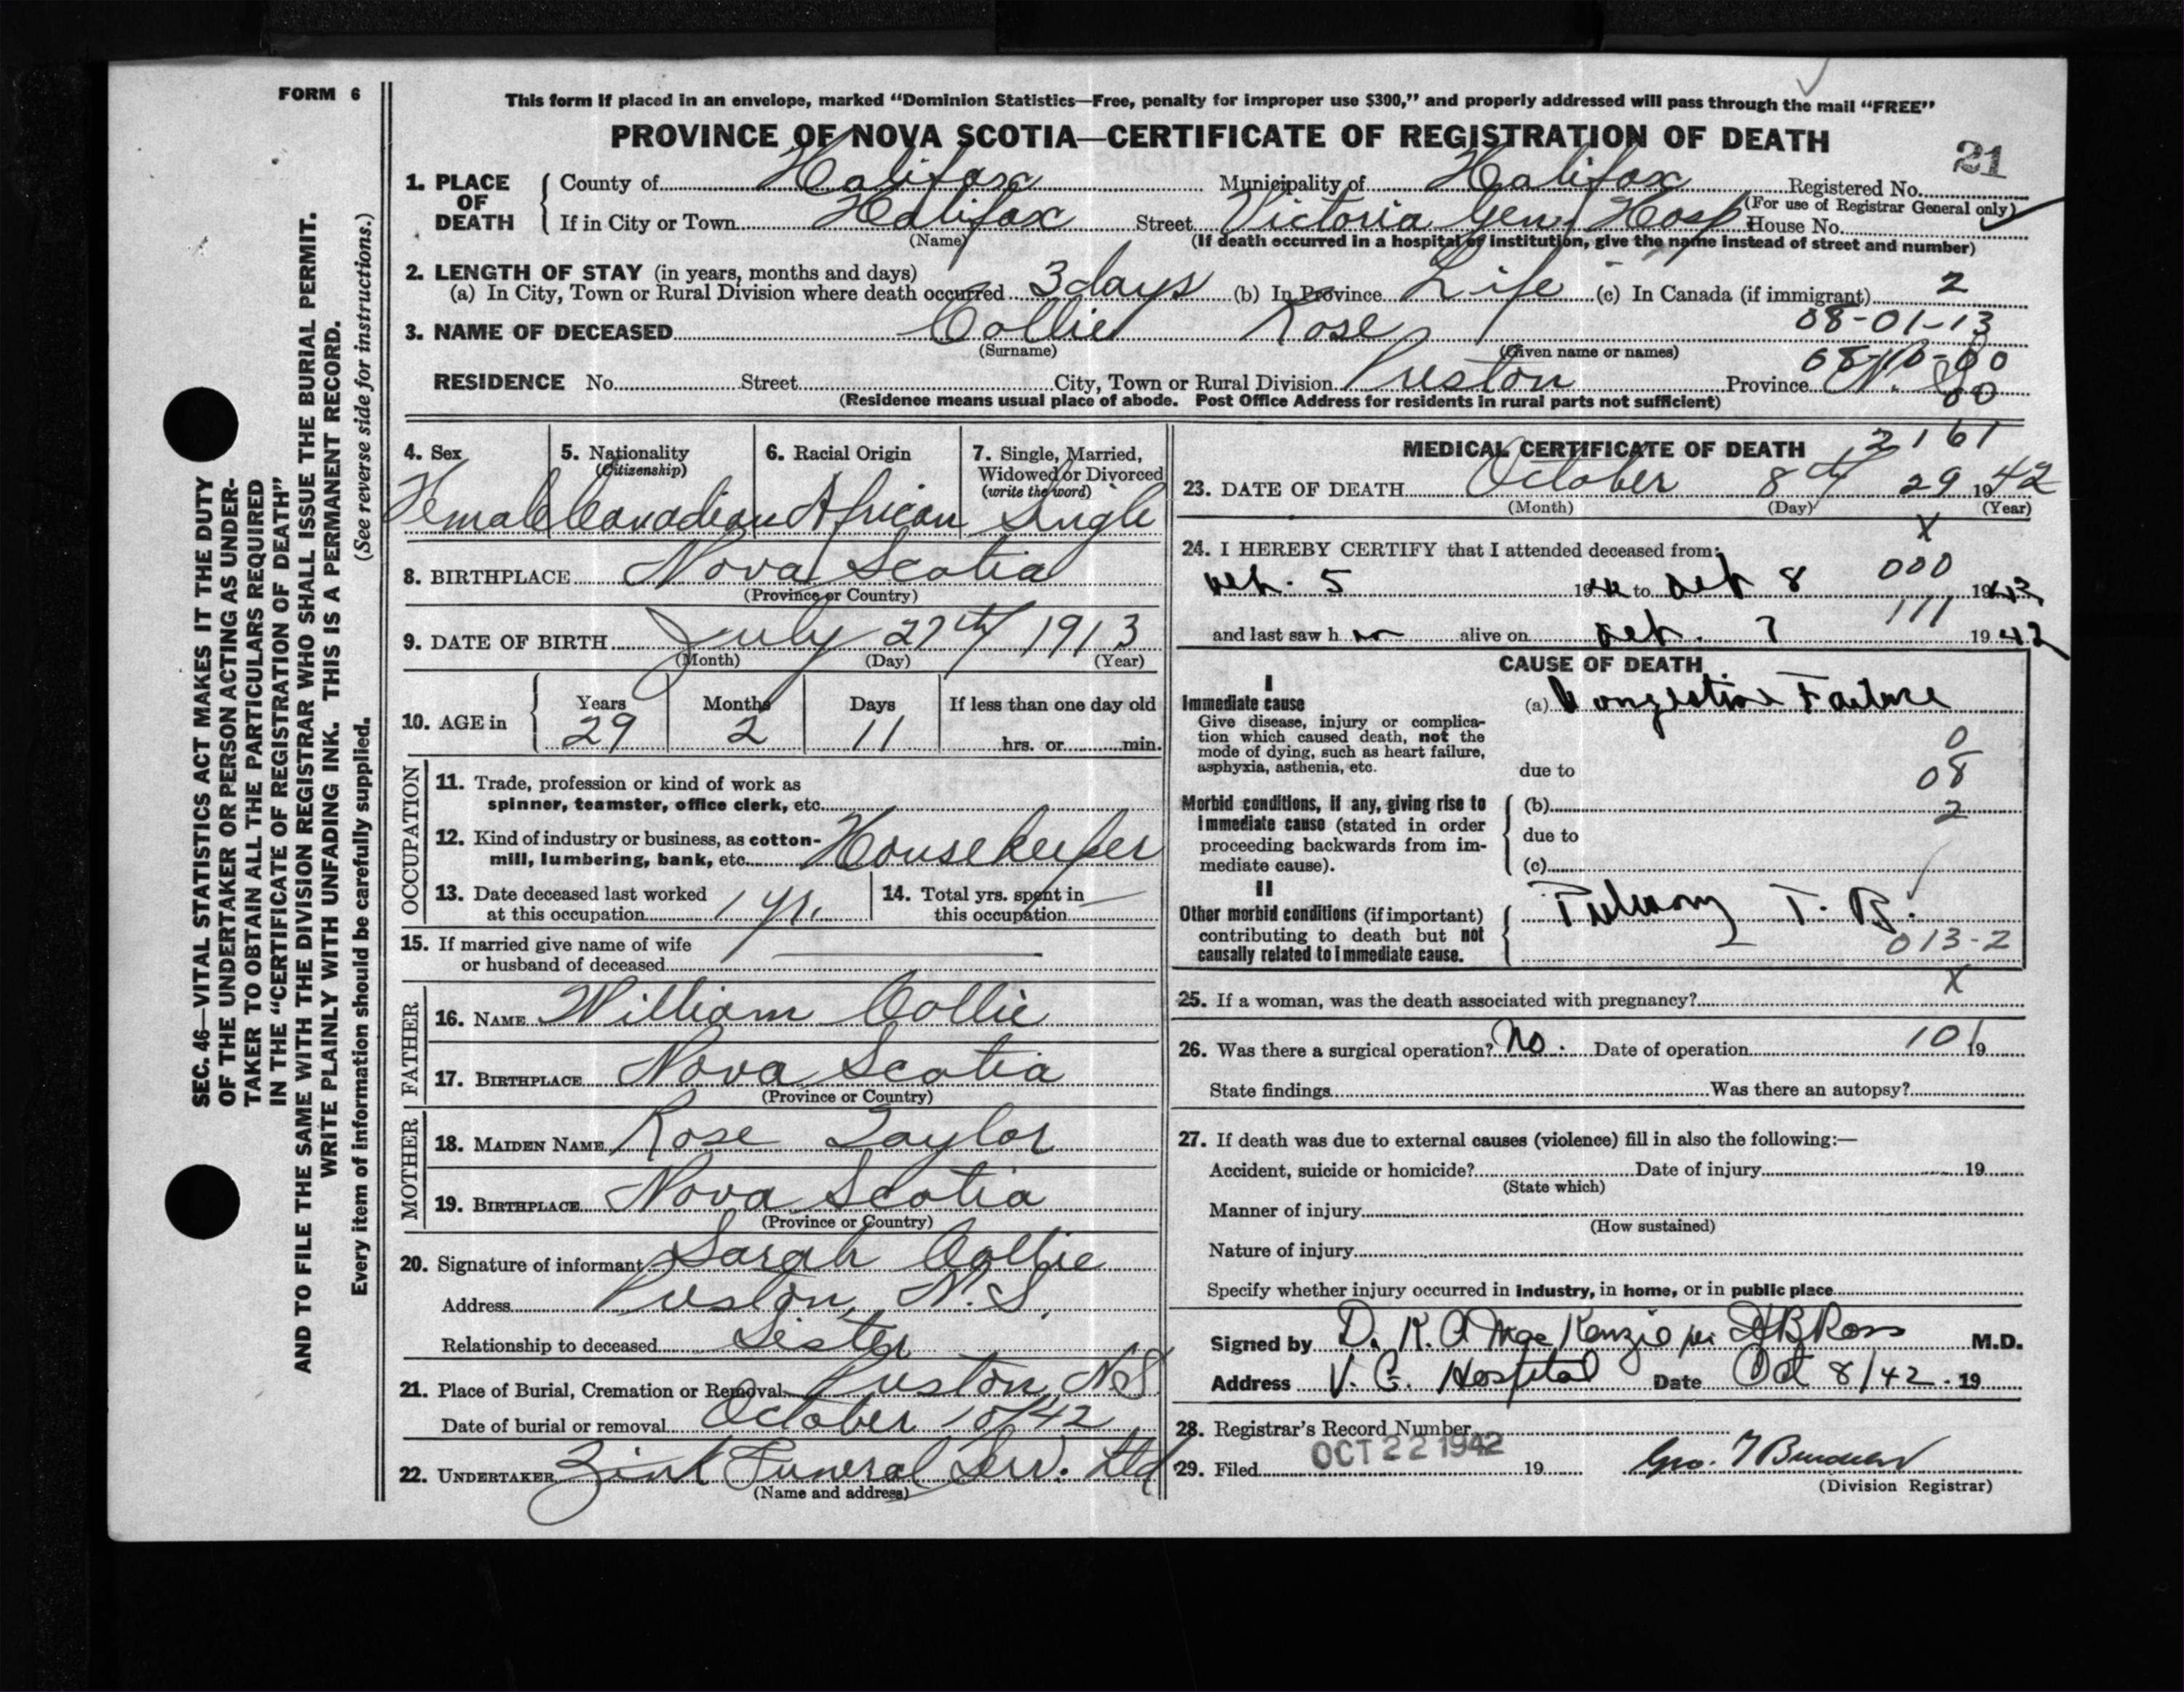 FORM 6
This form if placed in an envelope, marked “Dominion Statistics—Free, penalty for improper use $300,” and properly addressed will pass through the mail “FREE”
PROVINCE OF NOVA SCOTIA—CERTIFICATE OF REGISTRATION OF DEATH
21
1. PLACE OF DEATH
County of Halifax Municipality of Halifax Registered No.
(For use of Registrar General only)
If in City or Town Halifax Street Victoria Gen Hosp House No.
(Name) (If death occurred in a hospital or institution, give the name instead of street and number)
2. LENGTH OF STAY (in years, months and days)
(a) In City, Town or Rural Division where death occurred 3 days (b) In Province Life (c) In Canada (if immigrant) 2
08-01-13
3. NAME OF DECEASED Collie Rose
(Surname) (Given name or names)
RESIDENCE No. Street City, Town or Rural Division Preston Province N.S.
(Residence means usual place of abode. Post Office Address for residents in rural parts not sufficient)
00
4. Sex
Female
5. Nationality
(Citizenship)
Canadian
6. Racial Origin
African
7. Single, Married,
Widowed or Divorced
(write the word)
Single
8. BIRTHPLACE Nova Scotia
(Province or Country)
9. DATE OF BIRTH July 27th 1913
(Month) (Day) (Year)
10. AGE in
Years Months Days If less than one day old
29 2 11 hrs. or min.
OCCUPATION
11. Trade, profession or kind of work as
spinner, teamster, office clerk, etc.
12. Kind of industry or business, as cotton-
mill, lumbering, bank, etc. Housekeeper
13. Date deceased last worked
at this occupation 1 yr.
14. Total yrs. spent in
this occupation —
15. If married give name of wife
or husband of deceased
FATHER
16. NAME William Collie
17. BIRTHPLACE Nova Scotia
(Province or Country)
MOTHER
18. MAIDEN NAME Rose Taylor
19. BIRTHPLACE Nova Scotia
(Province or Country)
20. Signature of informant Sarah Collie
Address Preston, N.S.
Relationship to deceased Sister
21. Place of Burial, Cremation or Removal Preston, N.S
Date of burial or removal October 10/42
22. UNDERTAKER Zink Funeral Serv. Ltd
(Name and address)
MEDICAL CERTIFICATE OF DEATH
2161
23. DATE OF DEATH October 8th 29 1942
(Month) (Day) (Year)
X
24. I HEREBY CERTIFY that I attended deceased from:
000
Oct. 5 1942 to Oct 8 1942
111
and last saw h alive on Oct. 7 1942
CAUSE OF DEATH
I
Immediate cause
Give disease, injury or complica-
tion which caused death, not the
mode of dying, such as heart failure,
asphyxia, asthenia, etc.
(a) Congestive Failure
0
due to 08
Morbid conditions, if any, giving rise to
immediate cause (stated in order
proceeding backwards from im-
mediate cause).
(b) 2
due to
(c)
II
Other morbid conditions (if important)
contributing to death but not
causally related to immediate cause.
T. B.
013-2
X
25. If a woman, was the death associated with pregnancy?
26. Was there a surgical operation? No. Date of operation 101 19
State findings Was there an autopsy?
27. If death was due to external causes (violence) fill in also the following:—
Accident, suicide or homicide? Date of injury 19
(State which)
Manner of injury
(How sustained)
Nature of injury
Specify whether injury occurred in industry, in home, or in public place
Signed by D. K. A MacKenzie per Ross M.D.
Address V. G. Hospital Date Oct 8/42 - 19
28. Registrar's Record Number
29. Filed OCT 22 1942 19
Geo.
(Division Registrar)
SEC. 46—VITAL STATISTICS ACT MAKES IT THE DUTY
OF THE UNDERTAKER OR PERSON ACTING AS UNDER-
TAKER TO OBTAIN ALL THE PARTICULARS REQUIRED
IN THE “CERTIFICATE OF REGISTRATION OF DEATH”
AND TO FILE THE SAME WITH THE DIVISION REGISTRAR WHO SHALL ISSUE THE BURIAL PERMIT.
WRITE PLAINLY WITH UNFADING INK. THIS IS A PERMANENT RECORD.
Every item of information should be carefully supplied. (See reverse side for instructions.)